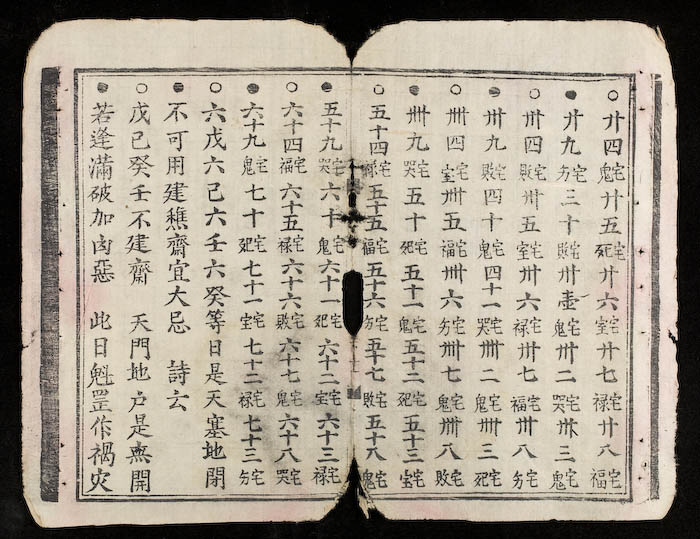 廿四宅鬼廿五宅死廿六宅宝廿七宅禄廿八宅福
廿九宅三十宅敗卅壹宅鬼卅二宅哭卅三宅鬼
卅四宅敗卅五宅宝卅六宅禄卅七宅福卅八宅
卅九宅敗四十宅鬼四十一宅哭卌二宅鬼卌三宅死
卌四宅宝卌五宅福卌六宅卌七宅鬼卌八宅敗
卌九宅哭五十宅死五十一宅鬼五十二宅死五十三宅宝
五十四宅禄五十五宅福五十六宅五十七宅敗五十八宅鬼
五十九宅哭六十宅鬼六十一宅死六十二宅宝六十三宅禄
六十四宅福六十五宅禄六十六宅敗六十七宅鬼六十八宅哭
六十九宅鬼七十宅死七十一宅宝七十二宅禄七十三宅
六戊六己六壬六癸等日是天塞地閉
不可用建醮齋宜大忌 詩云
戊己癸壬不建齋 天門地户是無開
若逢滿破加凶惡 此日魁罡作禍灾